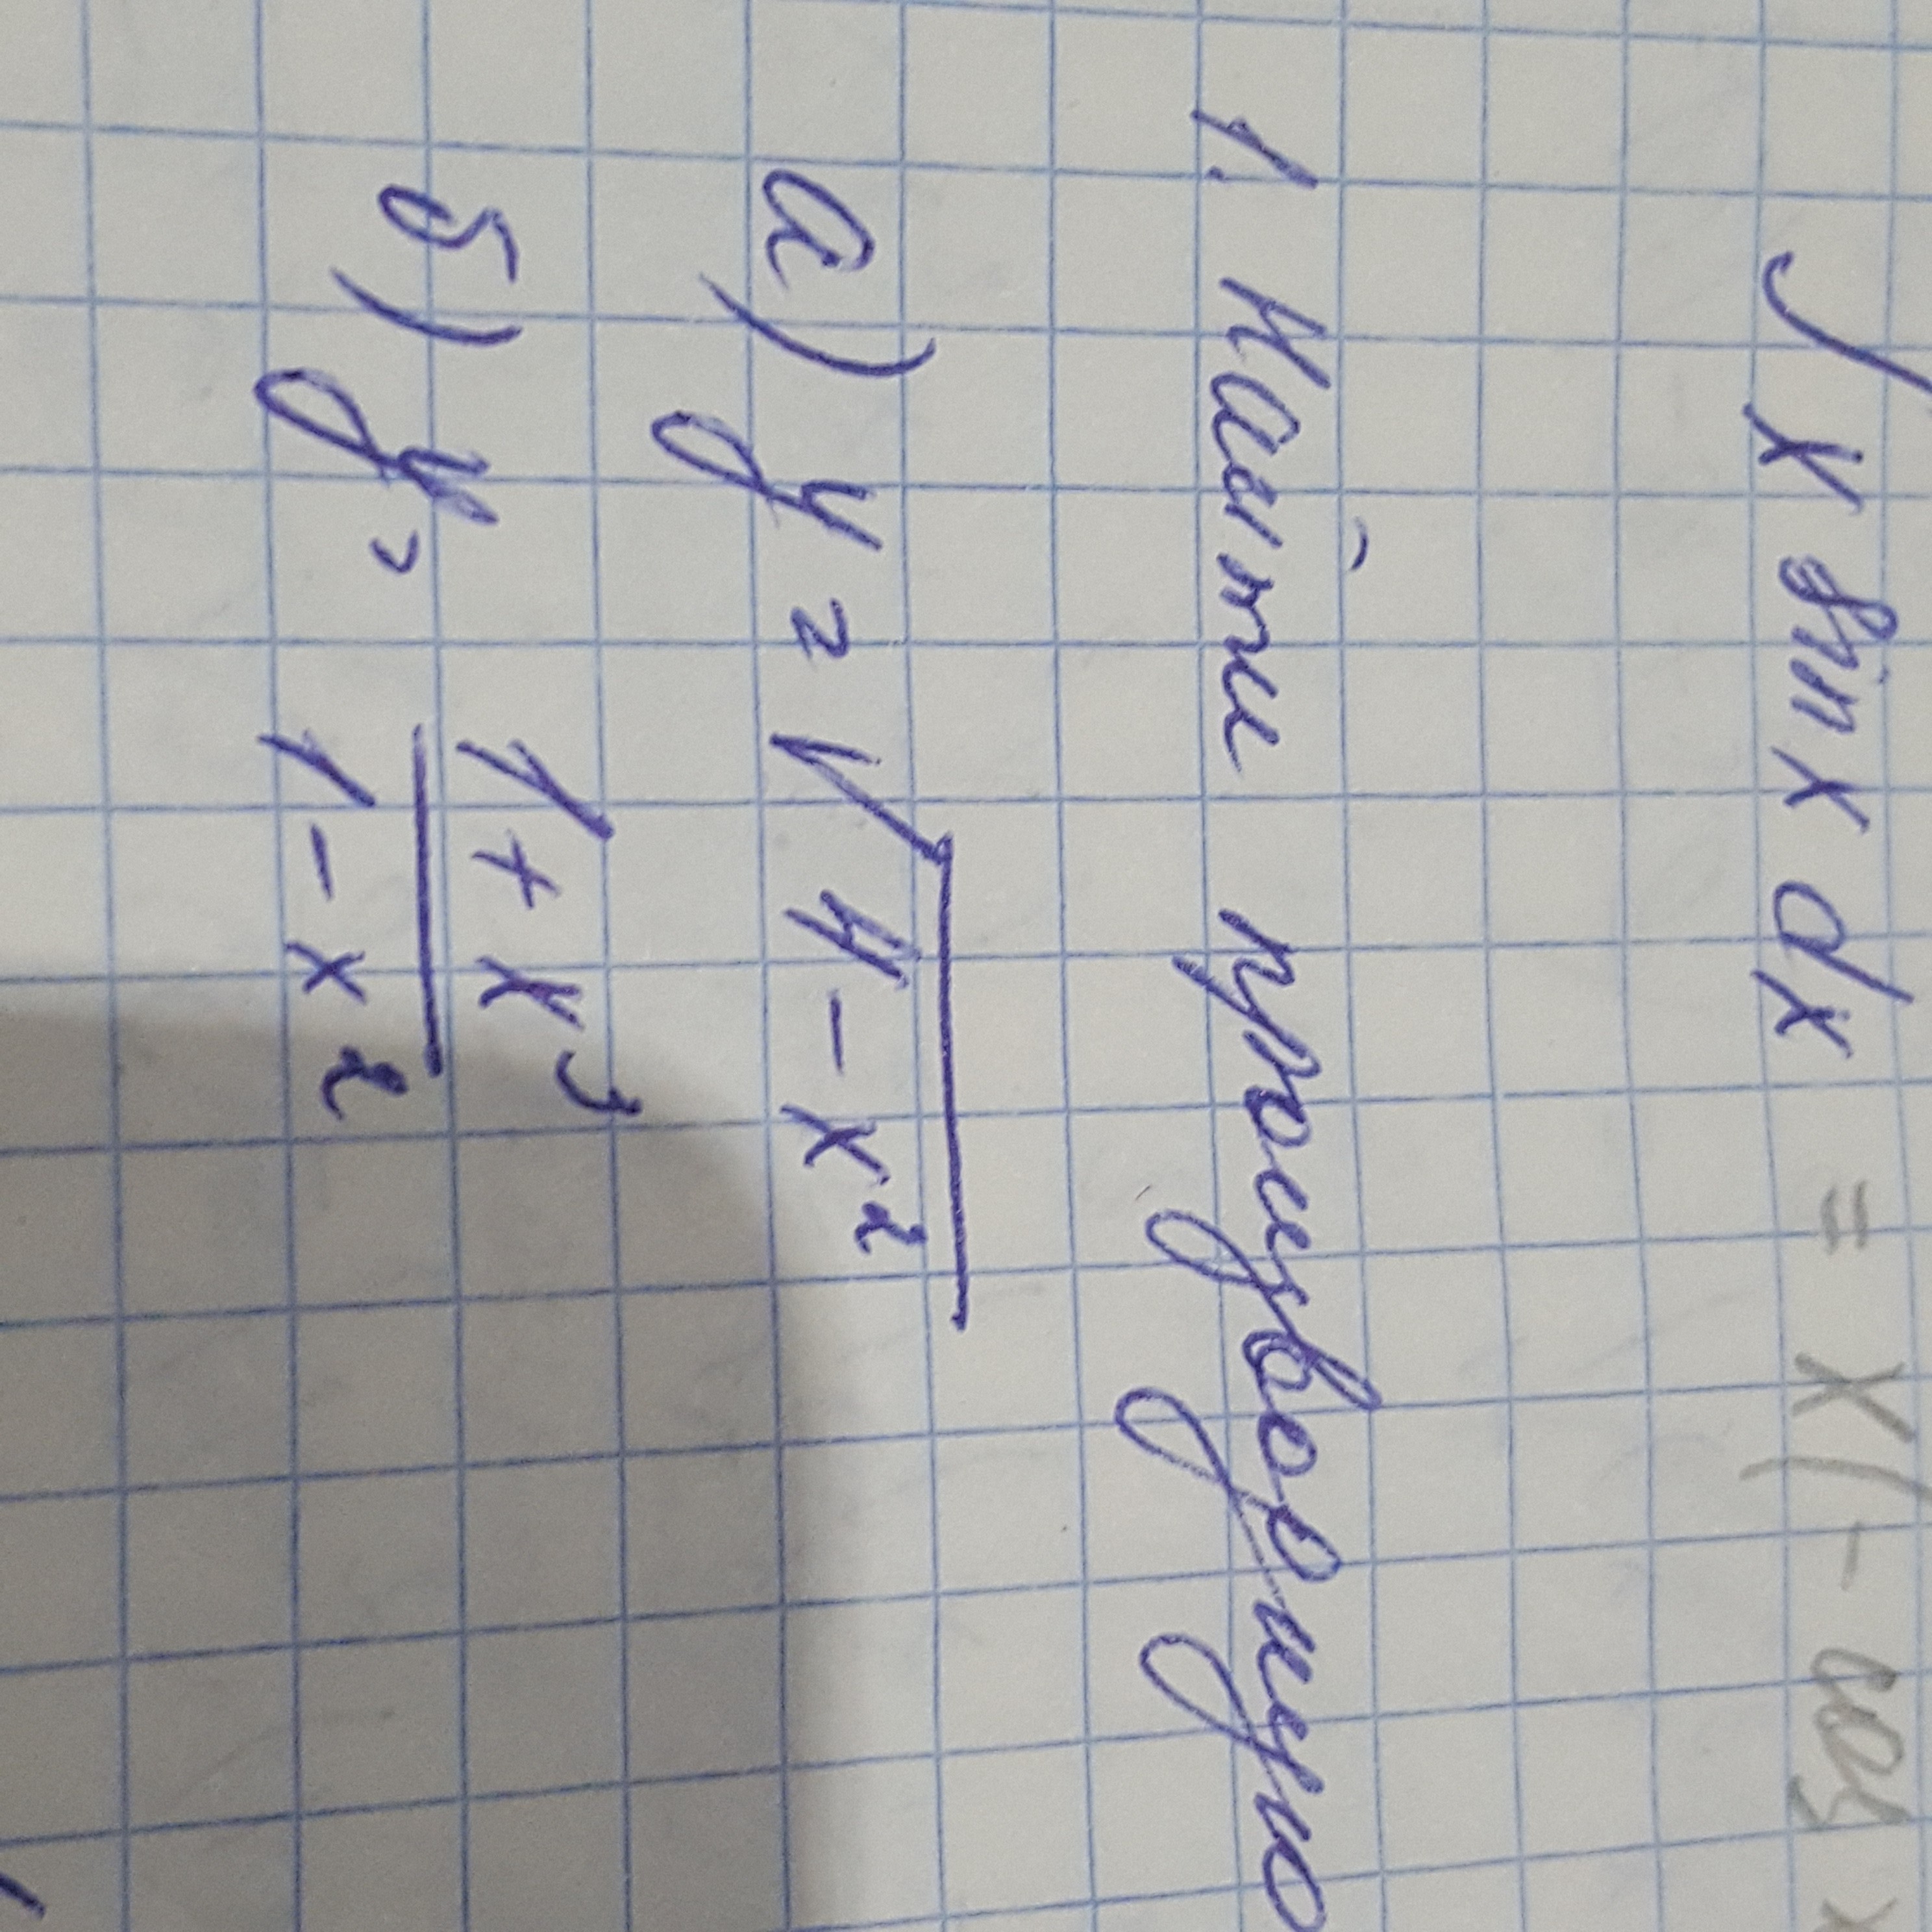 ∫ x sin x dx = x(- cos x
1. Найти производную
а) y = √(4 - x²)
б) y = (1 + x³)/(1 - x²)